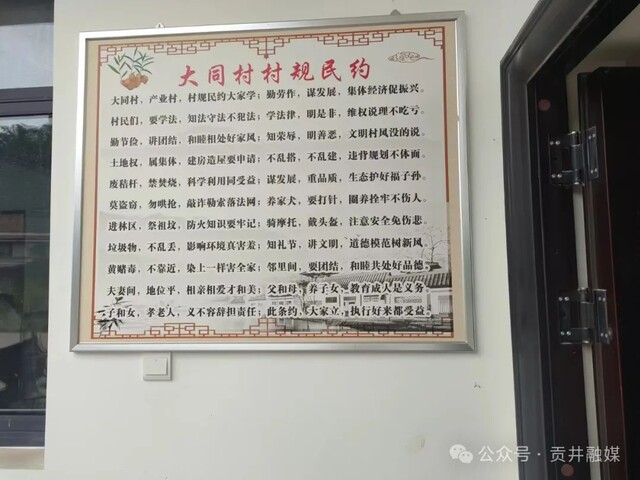 大同村村规民约
大同村，产业村，村规民约大家学；勤劳作，谋发展，集体经济促振兴。
村民们，要学法，知法守法不犯法；学法律，明是非，维权说理不吃亏。
勤节俭，讲团结，和睦相处好家风；知荣辱，明善恶，文明村风没的说。
土地权，属集体，建房造屋要申请；不乱搭，不乱建，违背规划不体面。
废秸秆，禁焚烧，科学利用同受益；谋发展，重品质，生态护好福子孙。
莫盗窃，勿哄抢，敲诈勒索落法网；养家犬，要打针，圈养拴牢不伤人。
进林区，祭祖坟，防火知识要牢记；骑摩托，戴头盔，注意安全免伤悲。
垃圾物，不乱丢，影响环境真害羞；知礼节，讲文明，道德模范树新风。
黄赌毒，不靠近，染上一样害全家；邻里间，要团结，和睦共处好品德。
夫妻间，地位平，相亲相爱才和美；父和母，养子女，教育成人是义务。
子和女，孝老人，义不容辞担责任；此条约，大家立，执行好来都受益。
公众号·贡井融媒